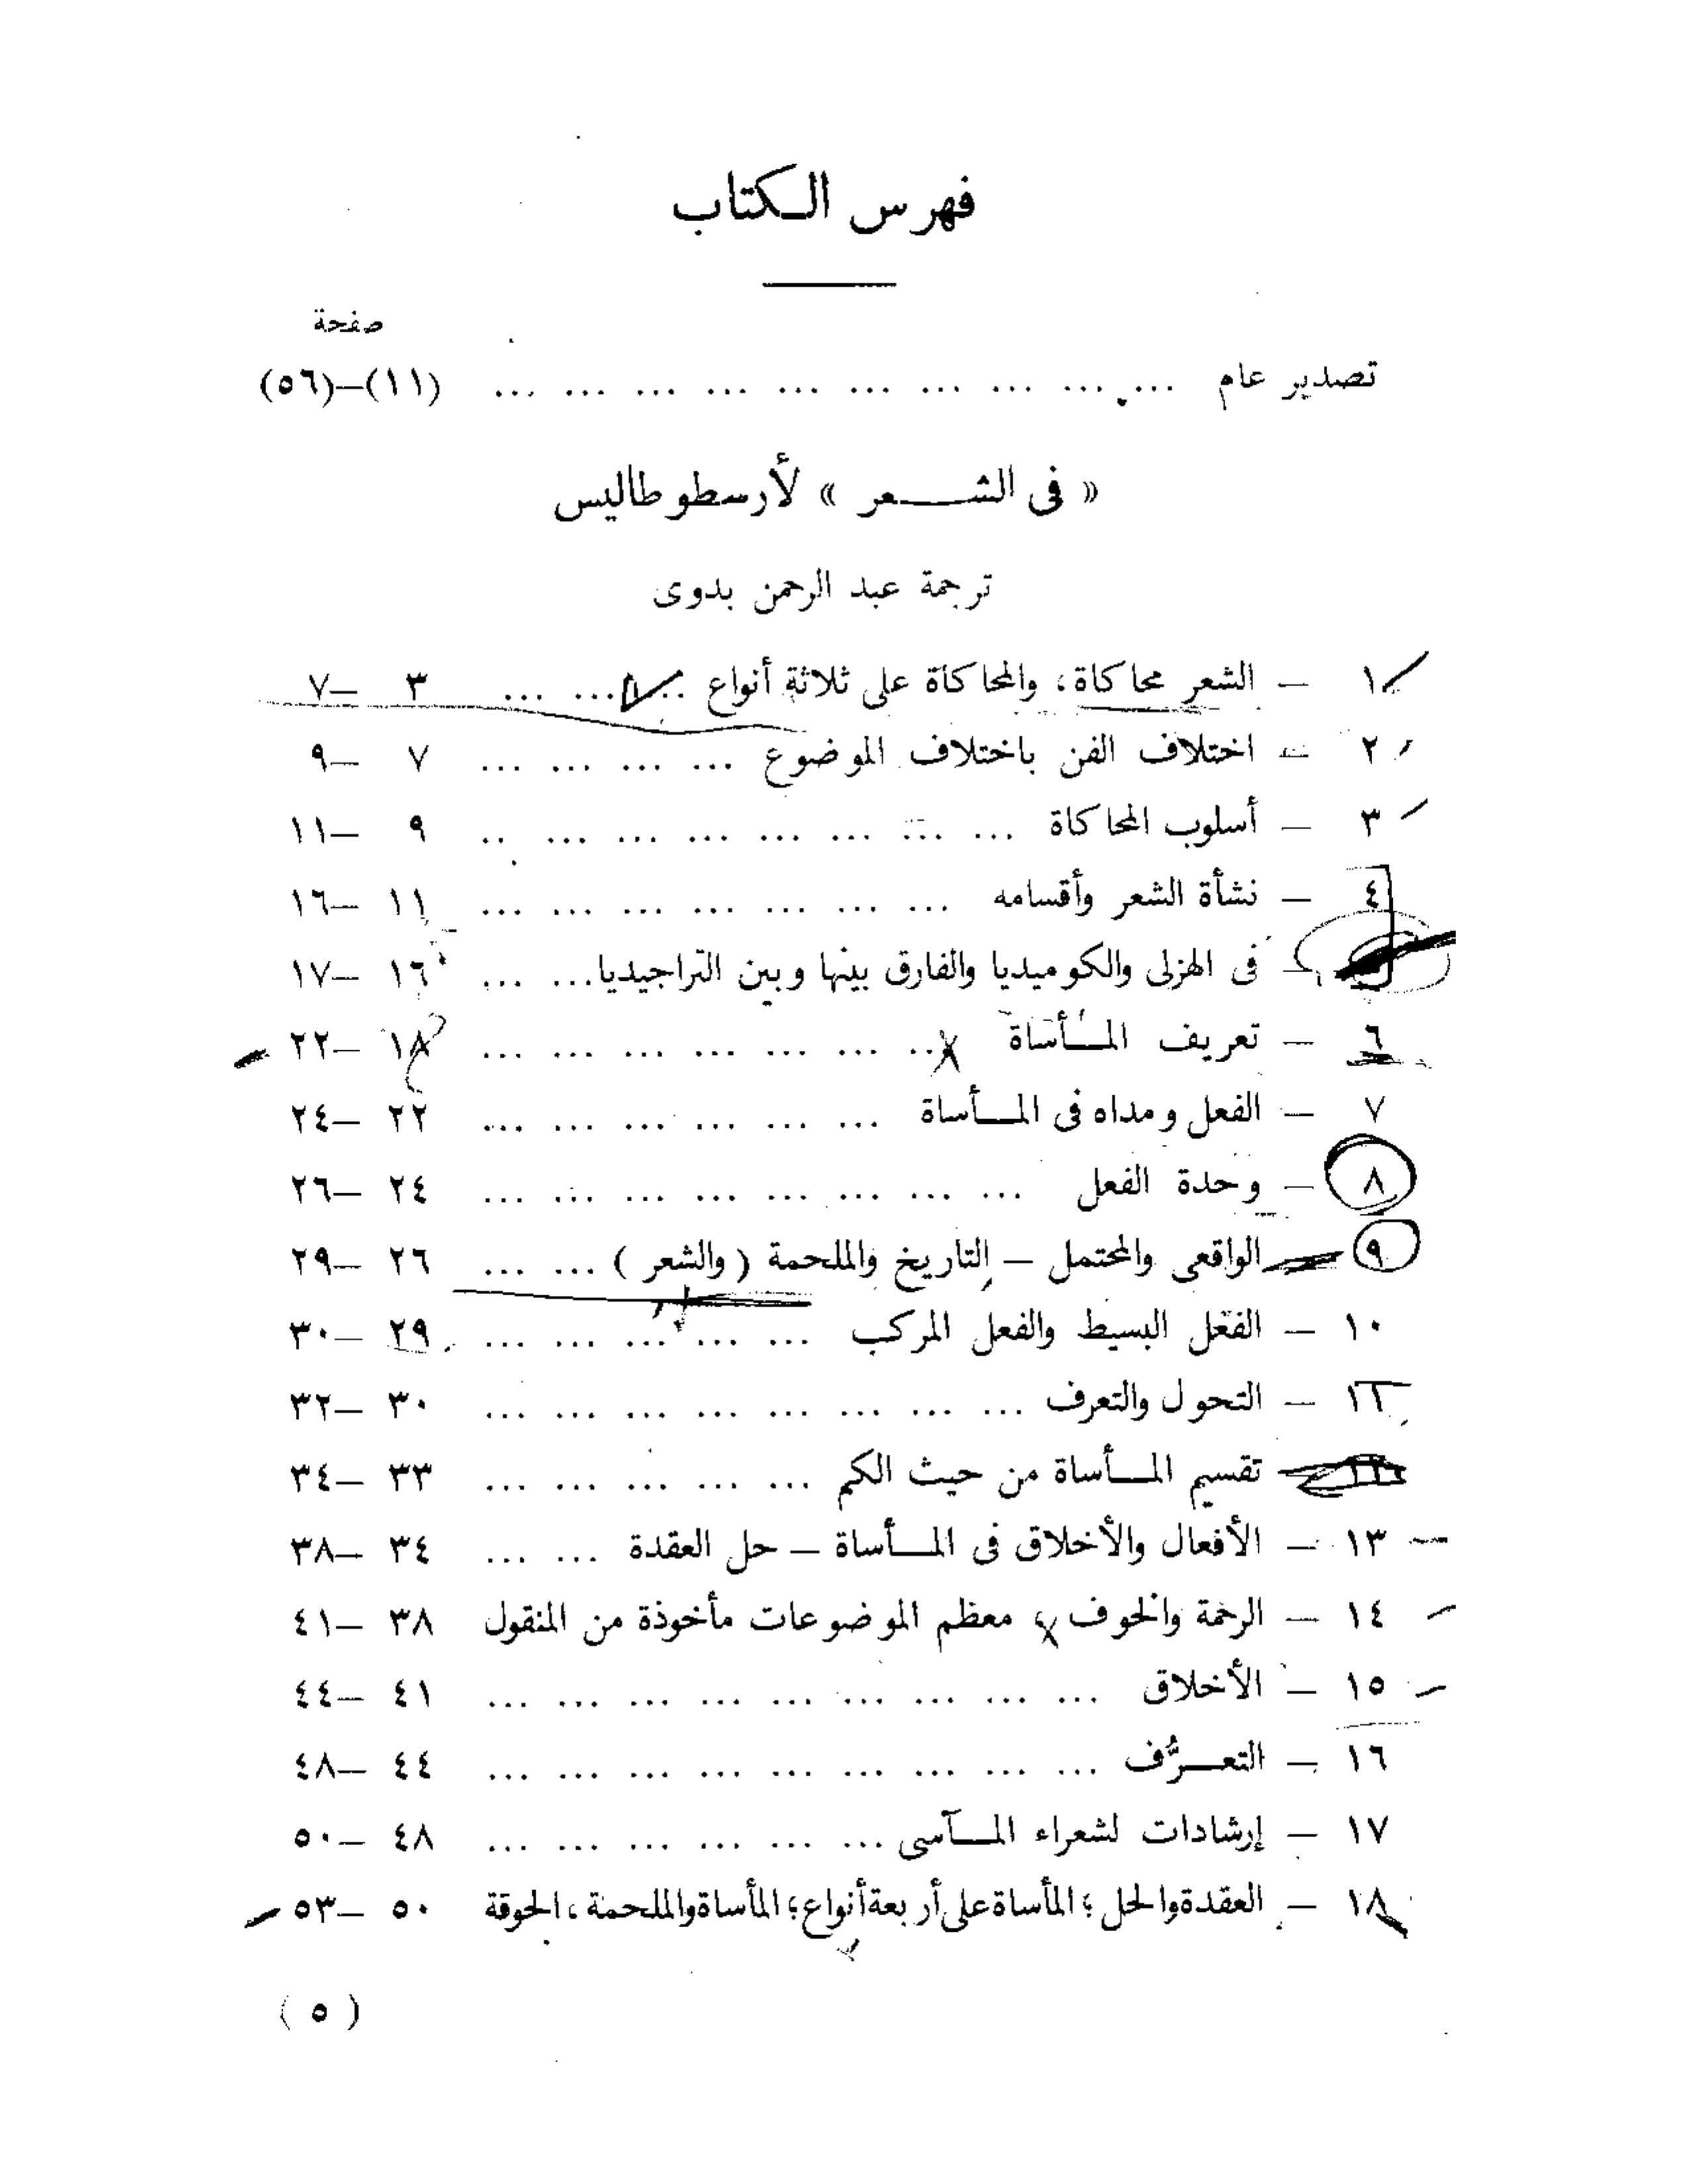 فهرس الكتاب
صفحة
تصدير عام ... ... ... ... ... ... ... ... ... ... (١١)—(٥٦)
« فى الشعر » لأرسطوطاليس
ترجمة عبد الرحمن بدوى
١ — الشعر محاكاة، والمحاكاة على ثلاثة أنواع ... ... ... ٣ —٧
٢ — اختلاف الفن باختلاف الموضوع ... ... ... ... ٧ —٩
٣ — أسلوب المحاكاة ... ... ... ... ... ... ... .. ٩ —١١
٤ — نشأة الشعر وأقسامه ... ... ... ... ... ... ... ١١ —١٦
— فى الهزلى والكوميديا والفارق بينها وبين التراجيديا... ... ١٦ —١٧
٦ — تعريف المأساة ... ... ... ... ... ... ... ١٨ —٢٢
٧ — الفعل ومداه فى المأساة ... ... ... ... ... ... ٢٢ —٢٤
٨ — وحدة الفعل ... ... ... ... ... ... ... ... ٢٤ —٢٦
٩ — الواقعى والمحتمل — التاريخ والملحمة ( والشعر ) ... ... ٢٦ —٢٩
١٠ — الفعل البسيط والفعل المركب ... ... ... ... ... ٢٩ —٣٠
١١ — التحول والتعرف ... ... ... ... ... ... ... ... ٣٠ —٣٢
١٢ — تقسيم المأساة من حيث الكم ... ... ... ... ... ٣٣ —٣٤
١٣ — الأفعال والأخلاق فى المأساة — حل العقدة ... ... ٣٤ —٣٨
١٤ — الرحمة والخوف ؛ معظم الموضوعات مأخوذة من المنقول ٣٨ —٤١
١٥ — الأخلاق ... ... ... ... ... ... ... ... ... ٤١ —٤٤
١٦ — التعرُّف ... ... ... ... ... ... ... ... ... ٤٤ —٤٨
١٧ — إرشادات لشعراء المآسى ... ... ... ... ... ... ٤٨ —٥٠
١٨ — العقدة والحل ؛ المأساة على أربعة أنواع ؛ المأساة والملحمة ، الجوقة ٥٠ —٥٣
( ٥ )